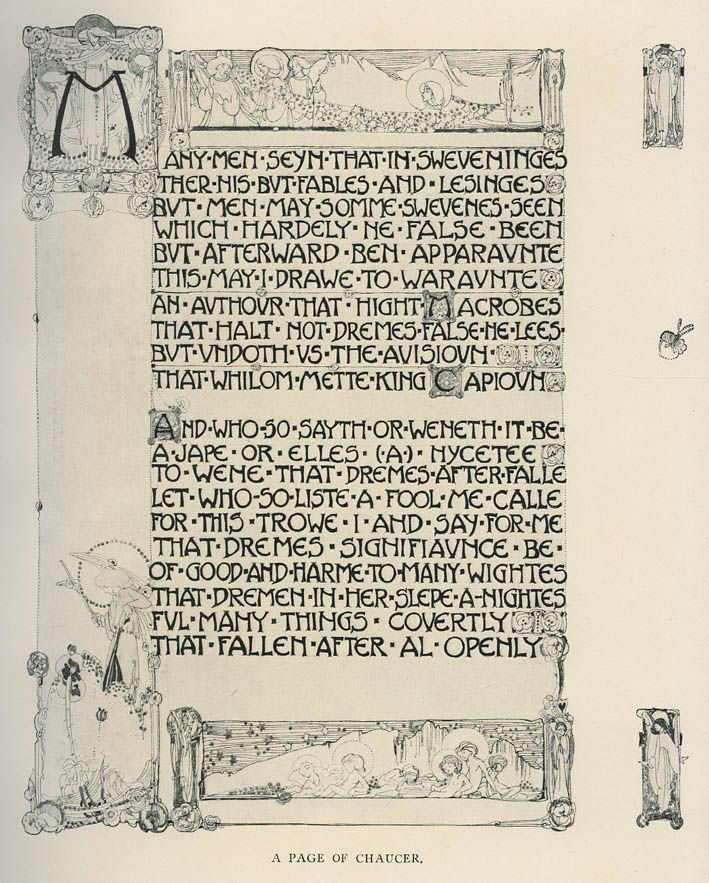 MANY·MEN·SEYN·THAT·IN·SWEVENINGES
THER·NIS·BVT·FABLES·AND·LESINGES
BVT·MEN·MAY·SOMME·SWEVENES·SEEN
WHICH·HARDELY·NE·FALSE·BEEN
BVT·AFTERWARD·BEN·APPARAVNTE
THIS·MAY·I·DRAWE·TO·WARAVNTE
AN·AVTHOUR·THAT·HIGHT·MACROBES
THAT·HALT·NOT·DREMES·FALSE·NE·LEES·
BUT·VNDOTH·VS·THE·AVISIOVN·
THAT·WHILOM·METTE·KING·CAPIOVN
AND·WHO·SO·SAYTH·OR·WENETH·IT·BE·
A·JAPE·OR·ELLES·(·A·)·NYCETEE
TO·WENE·THAT·DREMES·AFTER·FALLE
LET·WHO·SO·LISTE·A·FOOL·ME·CALLE
FOR·THIS·TROWE·I·AND·SAY·FOR·ME
THAT·DREMES·SIGNIFIAVNCE·BE·
OF·GOOD·AND·HARME·TO·MANY·WIGHTES
THAT·DREMEN·IN·HER·SLEPE·A·NIGHTES
FVL·MANY·THINGS·COVERTLY
THAT·FALLEN·AFTER·AL·OPENLY
A PAGE OF CHAUCER.